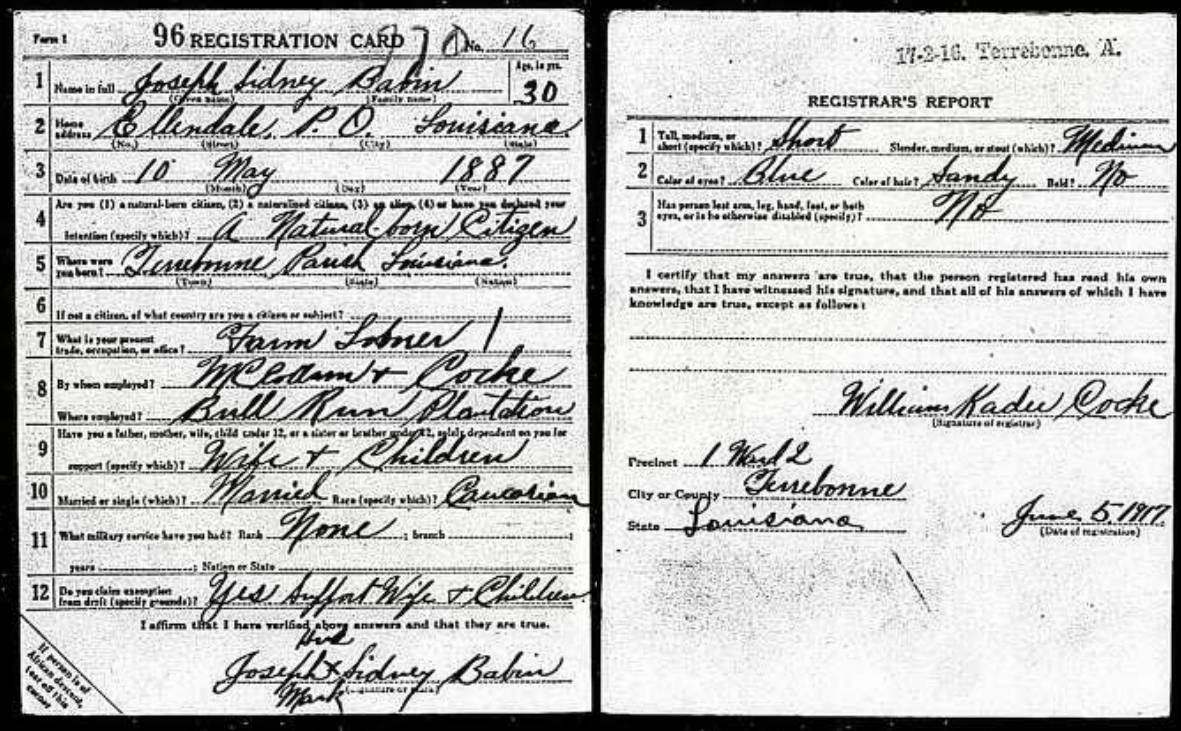 Form 1 96 REGISTRATION CARD No. 16
1 Name in full Joseph Sidney Babin Age, in yrs. 30
(Given name) (Family name)
2 Home address Ellendale, P. O. Louisiana
(No.) (Street) (City) (State)
3 Date of birth 10 May 1887
(Month) (Day) (Year)
4 Are you (1) a natural-born citizen, (2) a naturalized citizen, (3) an alien, (4) or have you declared your
intention (specify which)? A Natural-born Citizen
5 Where were you born? Terrebonne Parish Louisiana.
(Town) (State) (Nation)
6 If not a citizen, of what country are you a citizen or subject?
7 What is your present trade, occupation, or office? Farm Lobner
8 By whom employed? & Cocke
Where employed? Bull Run Plantation
9 Have you a father, mother, wife, child under 12, or a sister or brother under 12, solely dependent on you for
support (specify which)? Wife + Children
10 Married or single (which)? Married Race (specify which)? Caucasian
11 What military service have you had? Rank None ; branch ;
years ; Nation or State
12 Do you claim exemption from draft (specify grounds)? Yes Support Wife + Children
I affirm that I have verified above answers and that they are true.
His
Joseph x Sidney Babin
Mark (Signature or mark)
If person is of
African descent,
tear off this
corner
17-2-16. Terrebonne, A.
REGISTRAR'S REPORT
1 Tall, medium, or short (specify which)? Short Slender, medium, or stout (which)? Medium
2 Color of eyes? Blue Color of hair? Sandy Bald? No
3 Has person lost arm, leg, hand, foot, or both eyes, or is he otherwise disabled (specify)? No
I certify that my answers are true, that the person registered has read his own
answers, that I have witnessed his signature, and that all of his answers of which I have
knowledge are true, except as follows:
William Kadee Cocke
(Signature of registrar)
Precinct 1 Ward 2
City or County Terrebonne
State Louisiana June 5, 1917
(Date of registration)